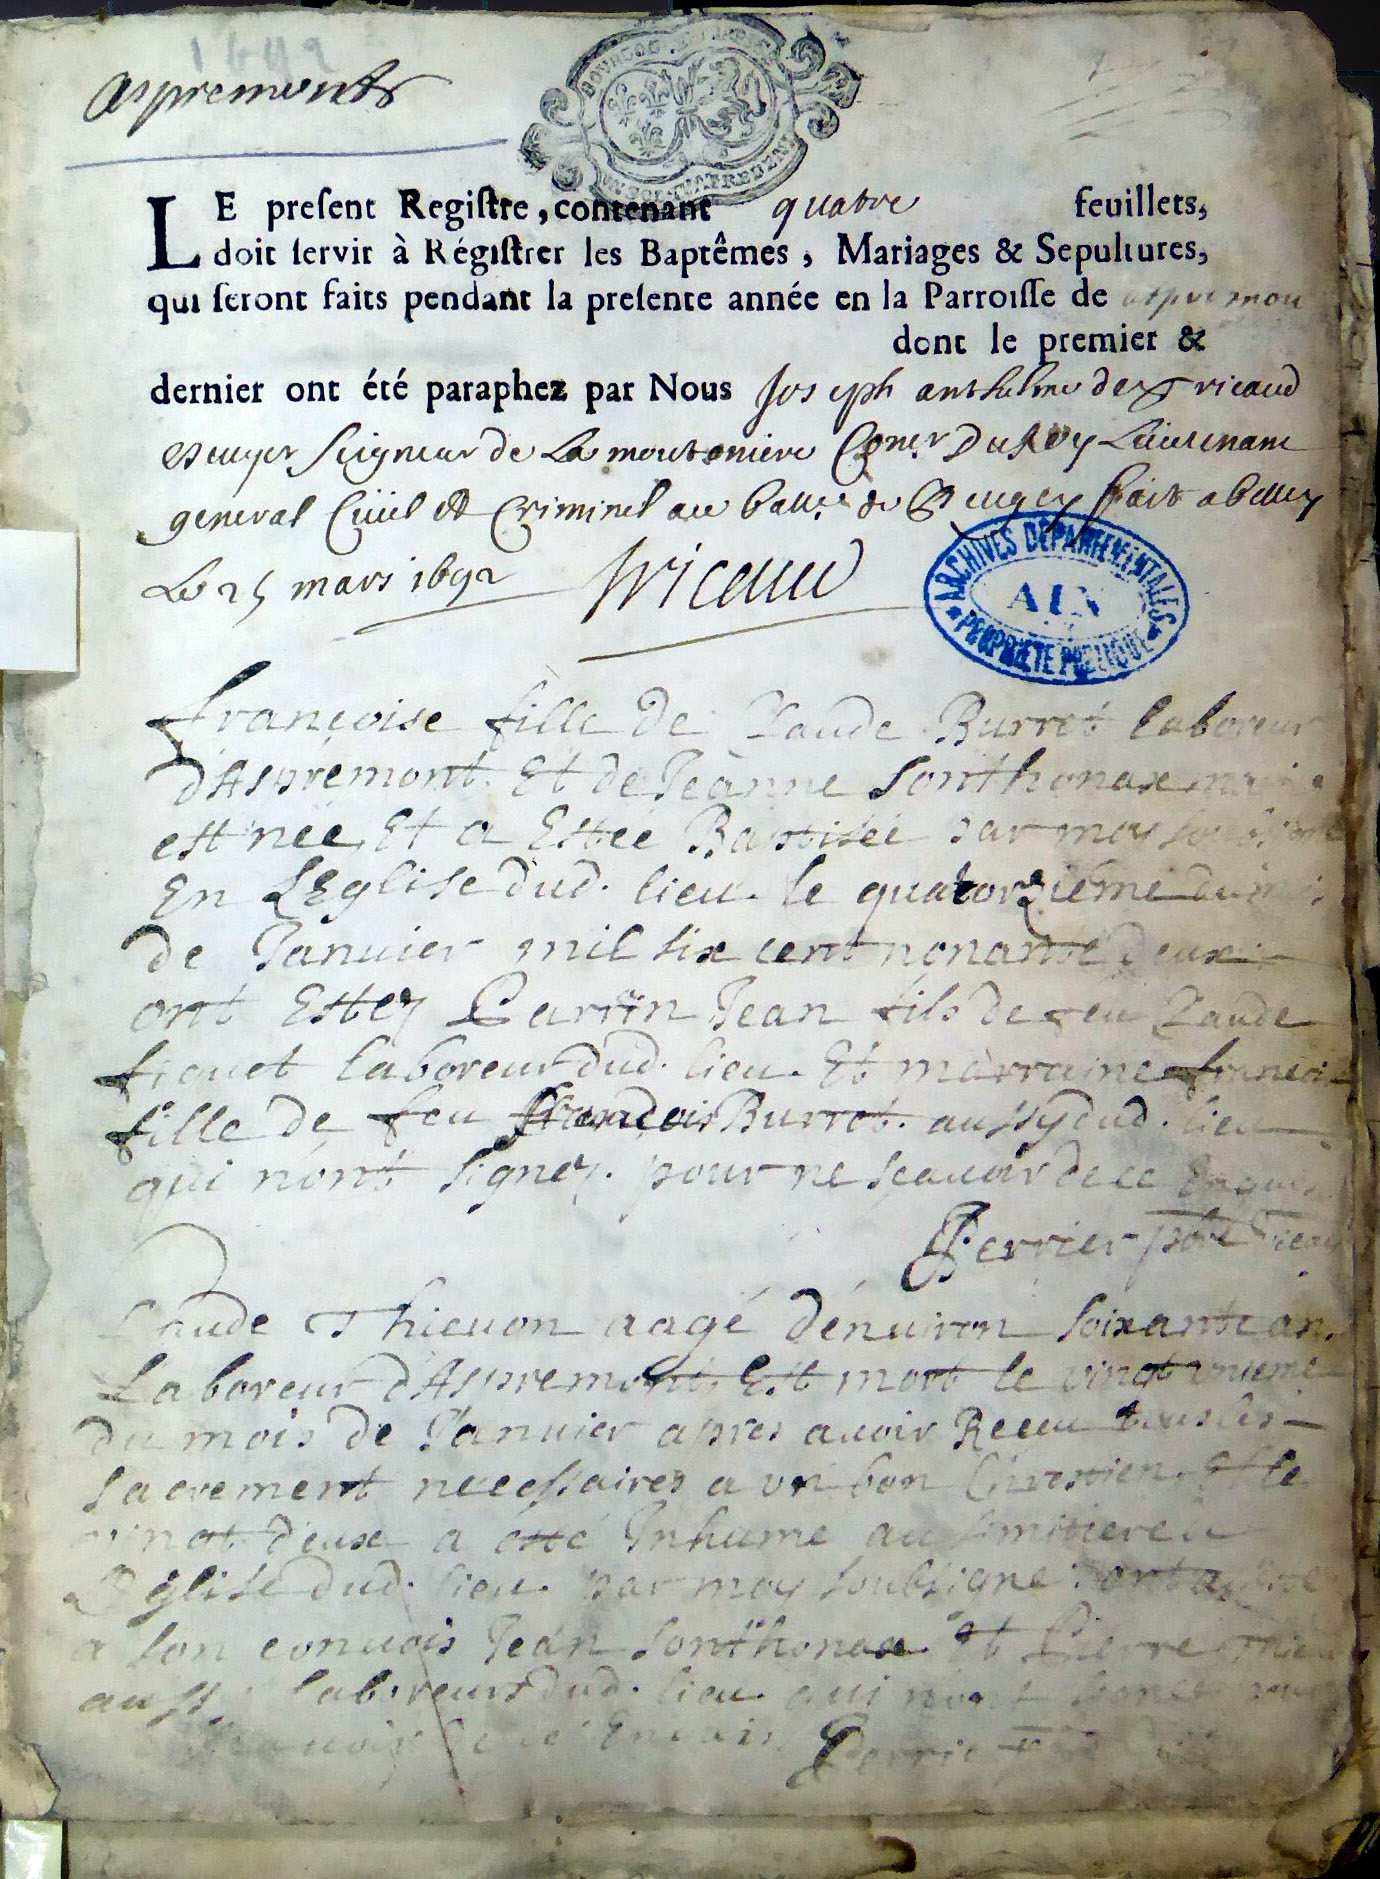 1692
aspremont
BOURGOG
UN SOL QUATRE DEN
LE preſent Regiſtre, contenant quatre feuillets,
doit ſervir à Régiſtrer les Baptêmes, Mariages & Sepultures,
qui ſeront faits pendant la preſente année en la Parroiſſe de aspremon
dont le premier &
dernier ont été paraphez par Nous Joseph anthelme de Tricaud
escuyer Seigneur de La moutoniere Coner Du Roy Lieutenant
general Civil et Criminel au de Beugey fait a belley
Le 25 mars 1692 Tricaud
ARCHIVES DÉPARTEMENTALES
AIN
PROPRIÉTÉ PUBLIQUE
françoise fille de Claude Burret laboreur
d'Aspremont. Et de Jeanne Sonthonax
est née, Et a Estée Baptisée par moy
En L'Eglise dud. lieu. le quatorzieme du
de Janvier mil six cent nonante deux
ont Estez Parrin Jean fils de feu Claude
fiquet laboreur dud. lieu. Et marraine
fille de feu françois Burret. aussy dud. lieu
qui n'ont signez. pour ne sçavoir de ce Enquis
Perrier pbre
Claude Thievon aagé d'environ soixante ans
Laboreur d'Aspremont, Est mort le vingt unieme
du mois de Janvier apres avoir Receu tous les
sacrement necessaires a un bon Chrestien. Et le
vingt deux a esté Inhumé au Simitiere
L'Eglise dud. lieu. par moy soubsigné. ont
a son convois Jean Sonthonax. Et Pierre
aussy laboreurs dud. lieu. qui n'ont
Perrier